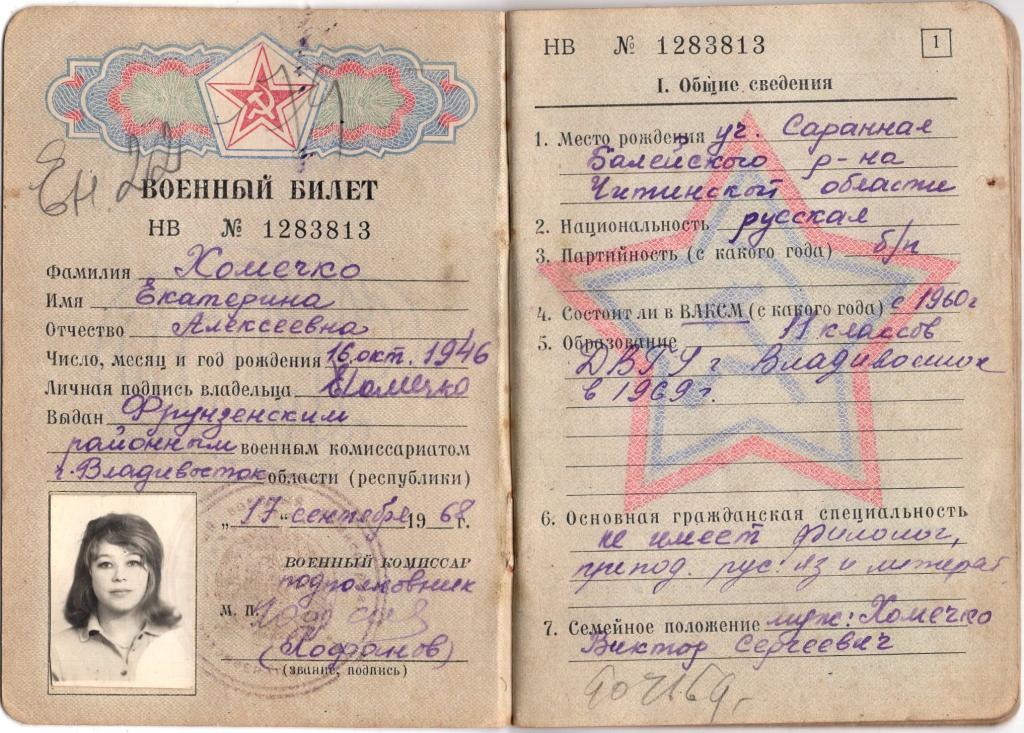 Ен. 22
ВОЕННЫЙ БИЛЕТ
НВ № 1283813
Фамилия Хомечко
Имя Екатерина
Отчество Алексеевна
Число, месяц и год рождения 16 окт. 1946
Личная подпись владельца Хомечко
Выдан Фрунзенским
районным военным комиссариатом
г. Владивосток области (республики)
„17“ сентября 1968 г.
ВОЕННЫЙ КОМИССАР
подполковник
М. П.
(звание, подпись)
НВ № 1283813
1
I. Общие сведения
1. Место рождения уч. Саранная
Балейского р-на
Читинской области
2. Национальность русская
3. Партийность (с какого года) б/п
4. Состоит ли в ВЛКСМ (с какого года) с 1960г
5. Образование 11 классов
ДВГУ г Владивосток
в 1969г.
6. Основная гражданская специальность
не имеет Филолог,
препод. рус. яз и литерат
7. Семейное положение муж: Хомечко
Виктор Сергеевич